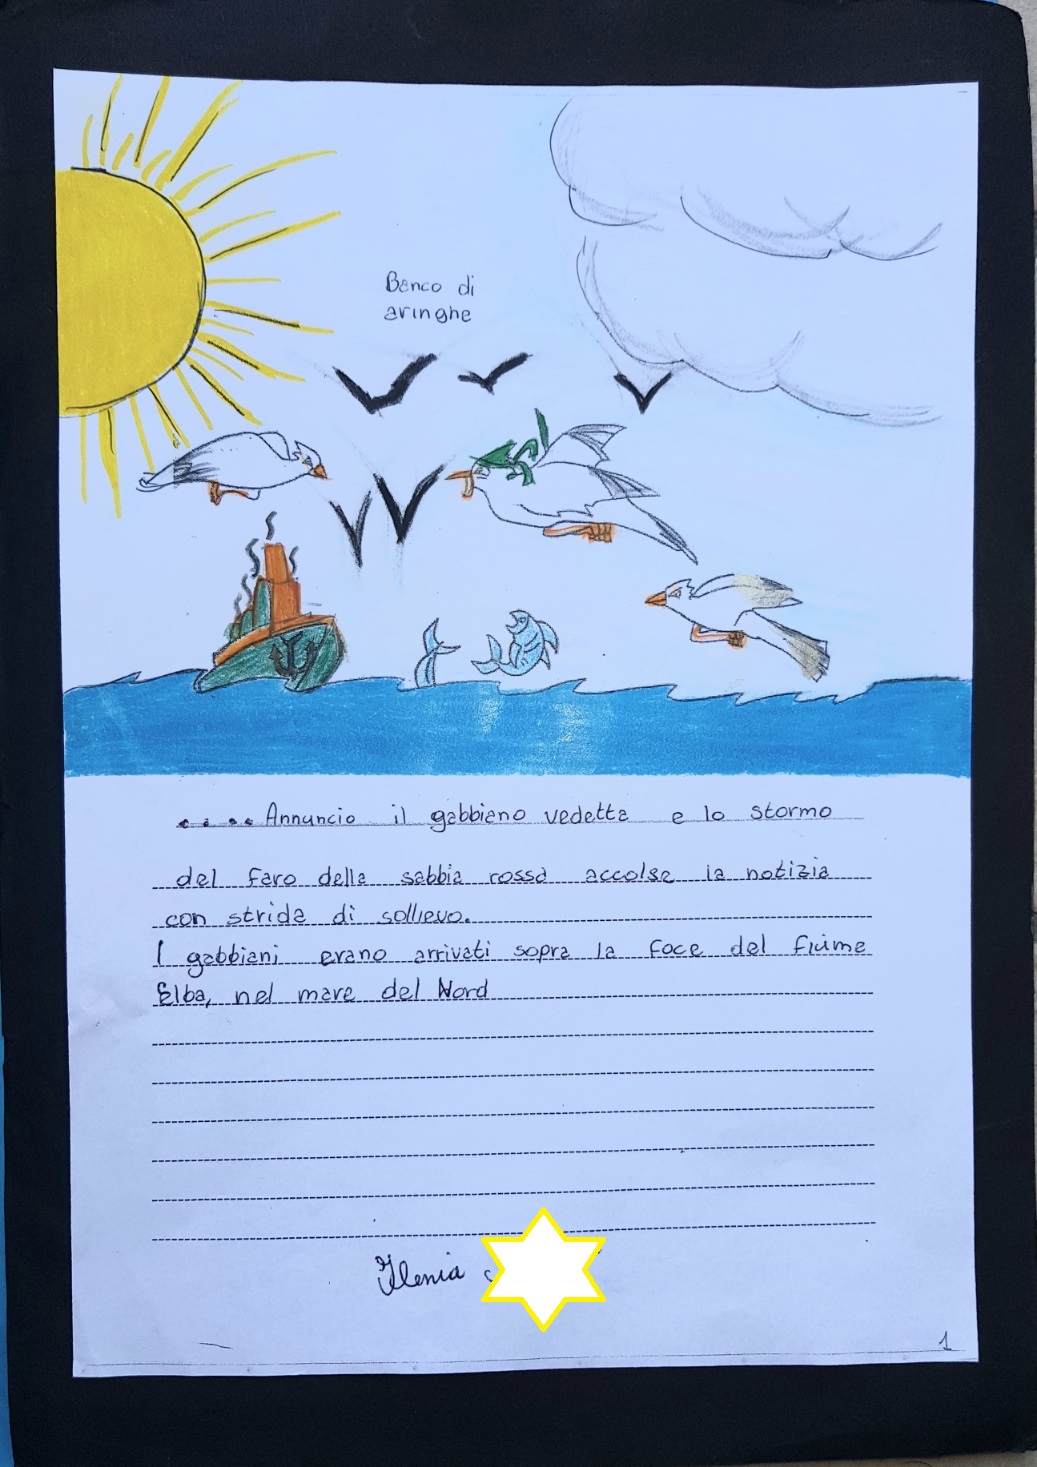 Banco di
aringhe
.... Annuncio il gabbiano vedetta e lo stormo
del faro della sabbia rossa accolse la notizia
con strida di sollievo.
I gabbiani erano arrivati sopra la foce del fiume
Elba, nel mare del Nord
Ilenia
1